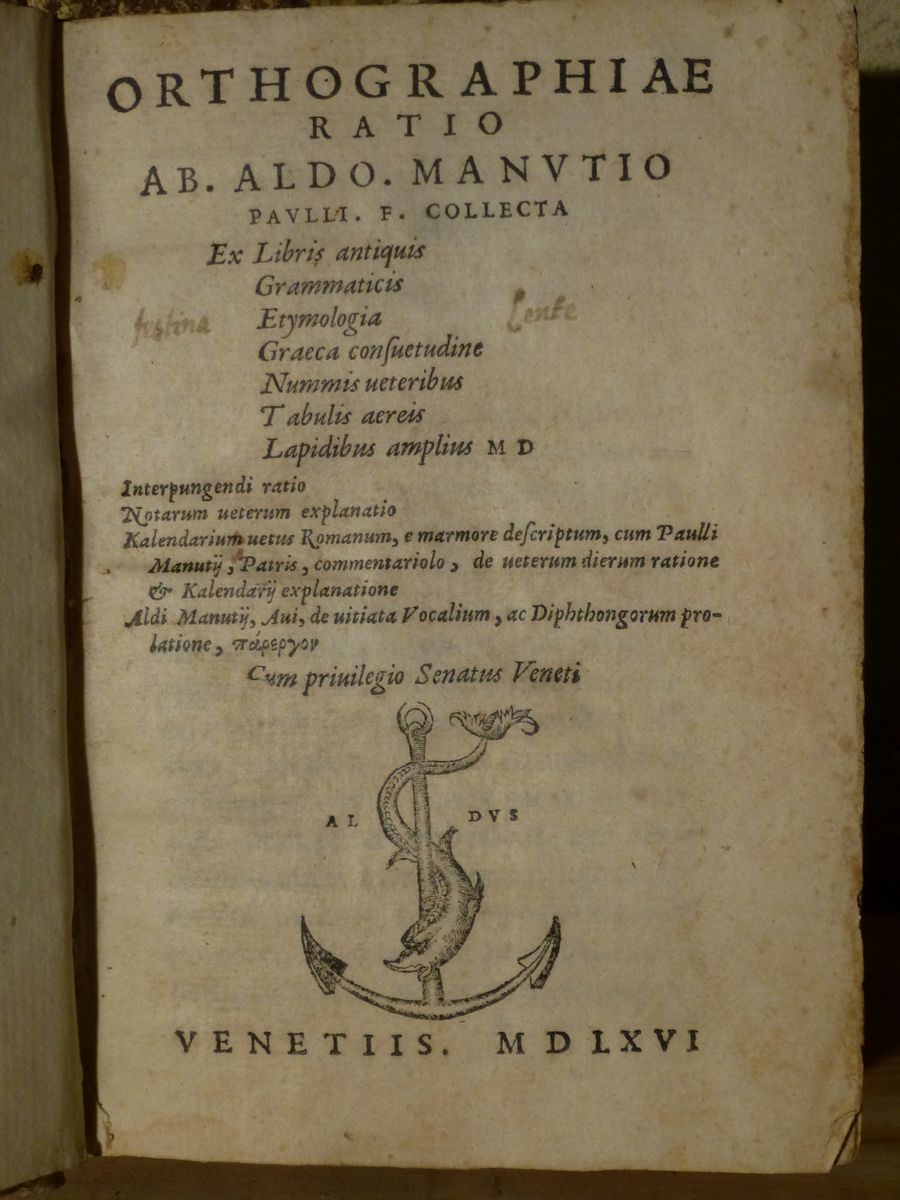 ORTHOGRAPHIAE
RATIO
AB. ALDO. MANVTIO
PAVLLI. F. COLLECTA
Ex Libris antiquis
Grammaticis
festina Etymologia Lente
Graeca conſuetudine
Nummis ueteribus
Tabulis aereis
Lapidibus amplius M D
Interpungendi ratio
Notarum ueterum explanatio
Kalendarium uetus Romanum, e marmore deſcriptum, cum Paulli
Manutij, Patris, commentariolo, de ueterum dierum ratione
& Kalendarij explanatione
Aldi Manutij, Aui, de uitiata Vocalium, ac Diphthongorum pro-
latione, πάρεργον
Cum priuilegio Senatus Veneti
AL DVS
VENETIIS. MDLXVI